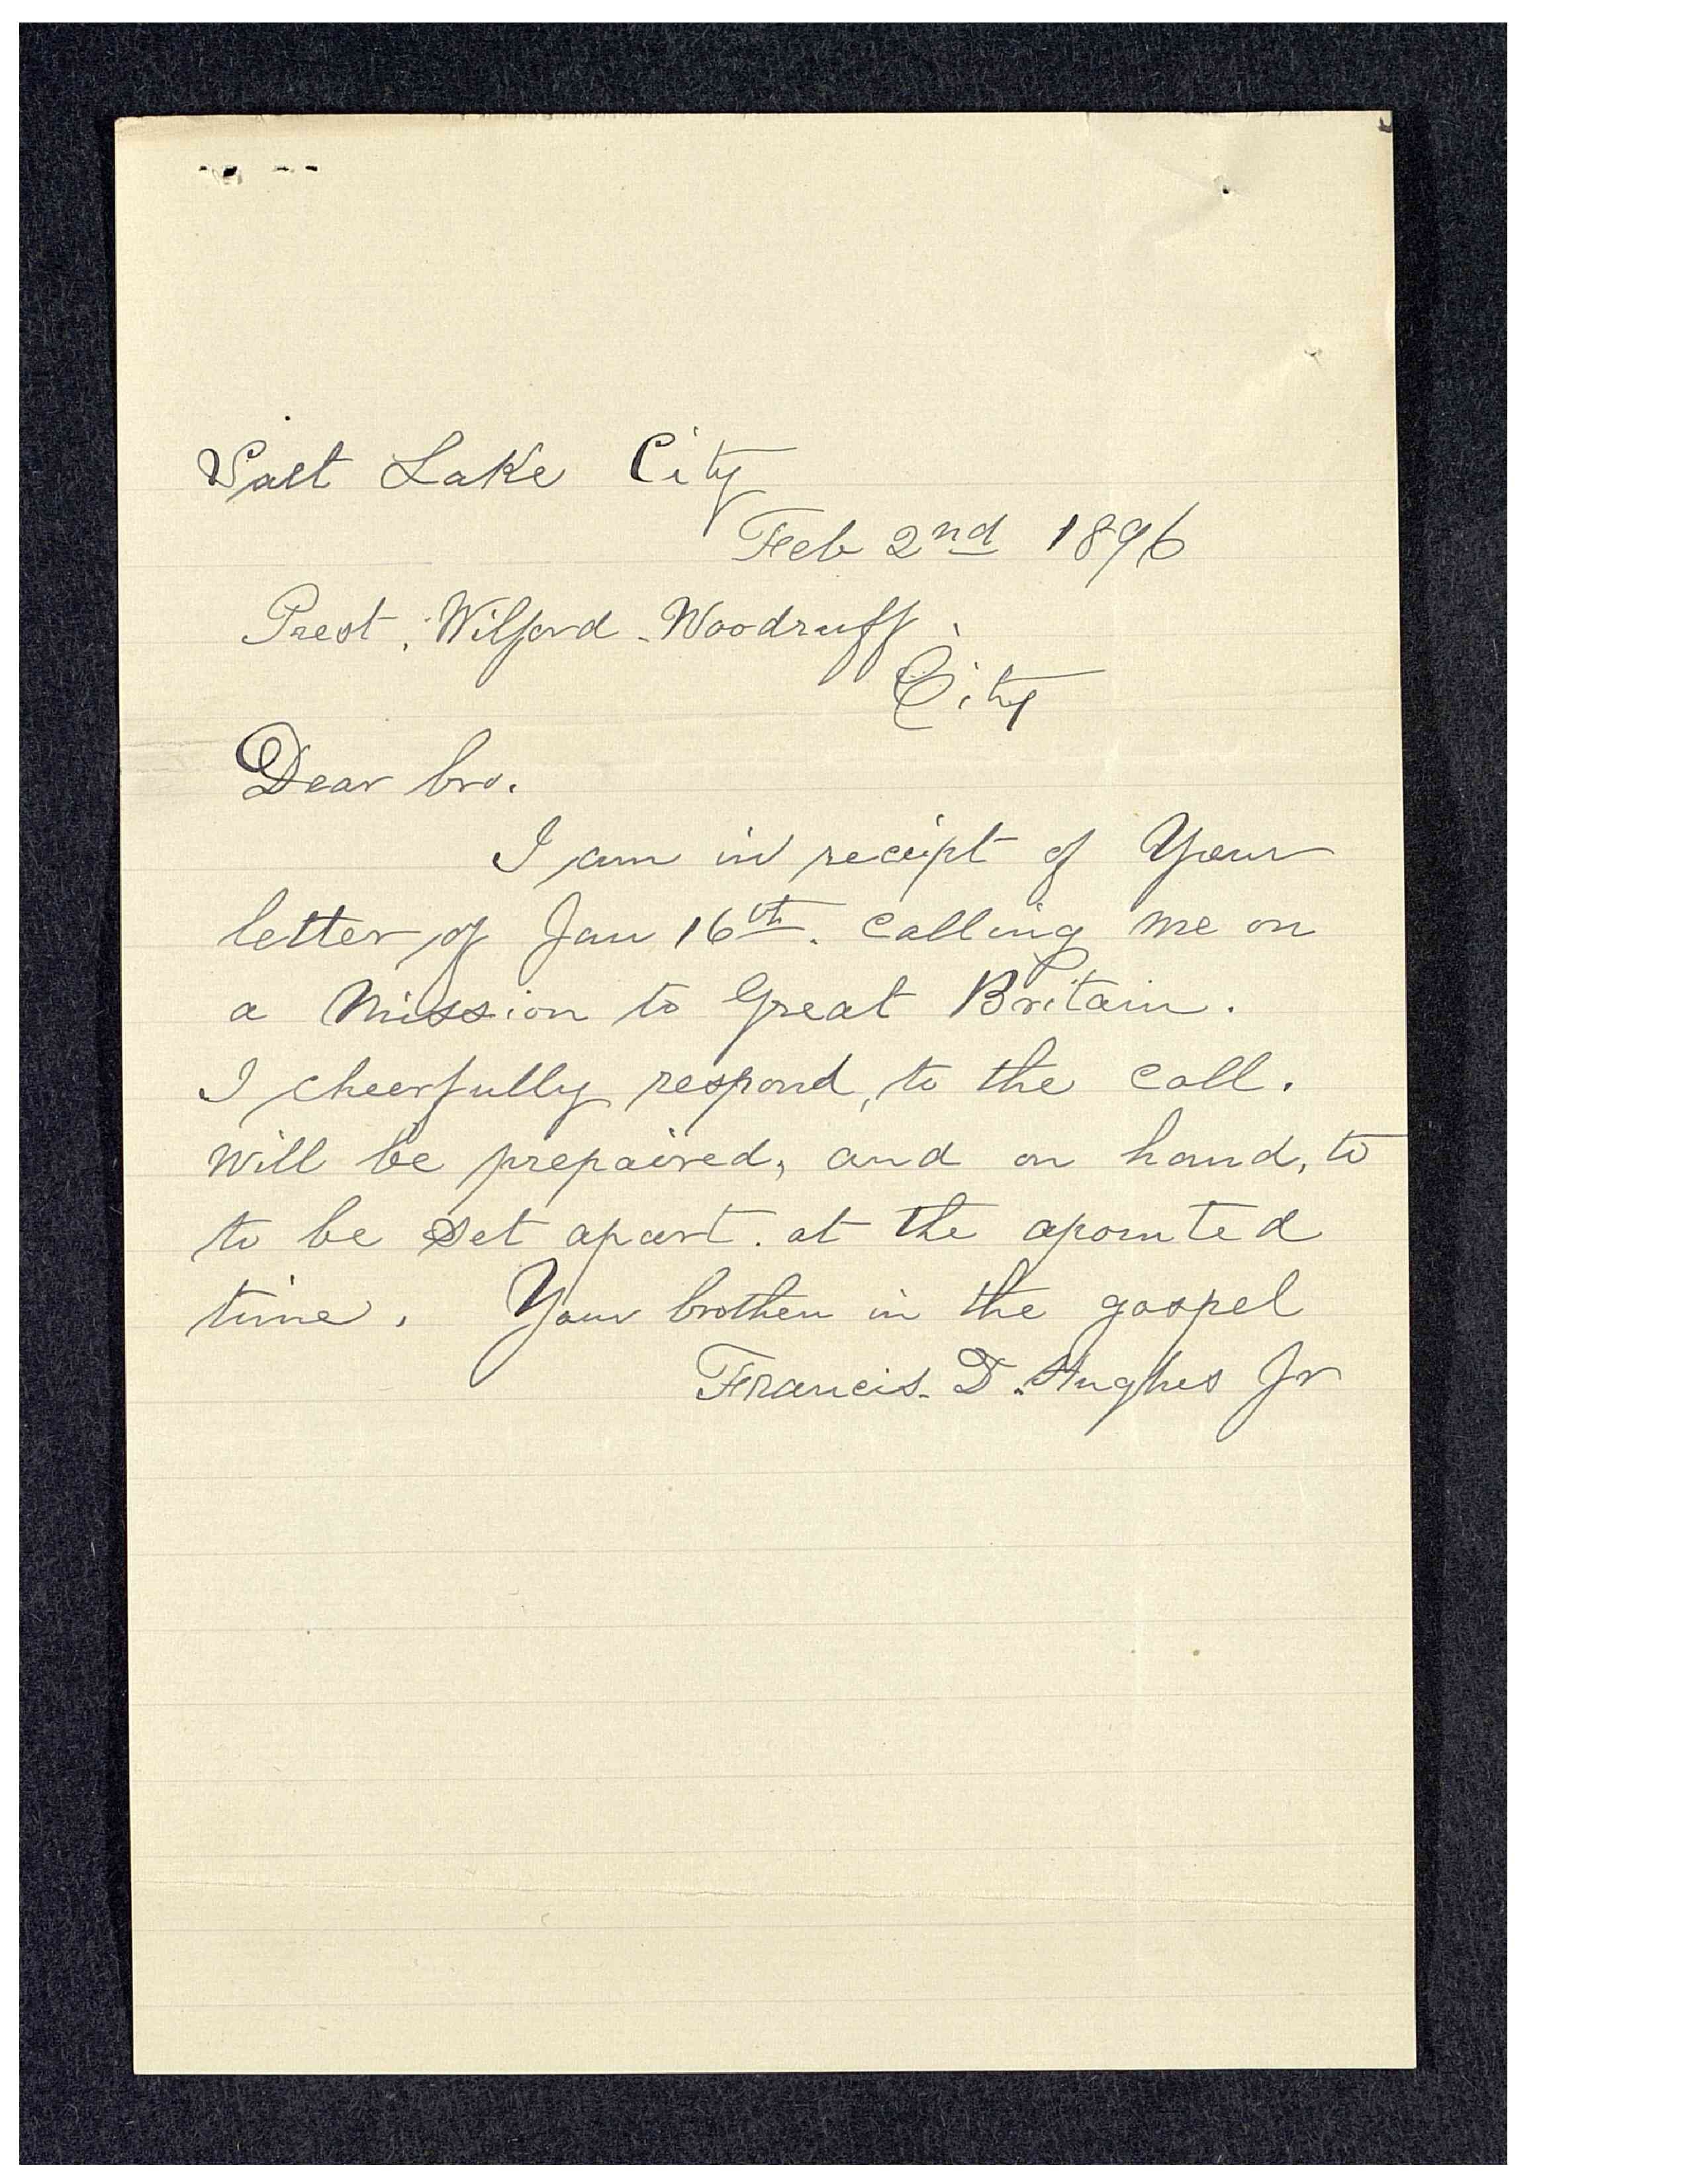 Salt Lake City
Feb 2nd 1896
Prest. Wilford Woodruff.
City
Dear bro.
I am in receipt of Your
letter of Jan 16th. calling me on
a Mission to Great Britain.
I cheerfully respond, to the call.
will be prepaired, and on hand, to
to be set apart. at the apointed
time. Your brother in the gospel
Francis. D. Hughes Jr